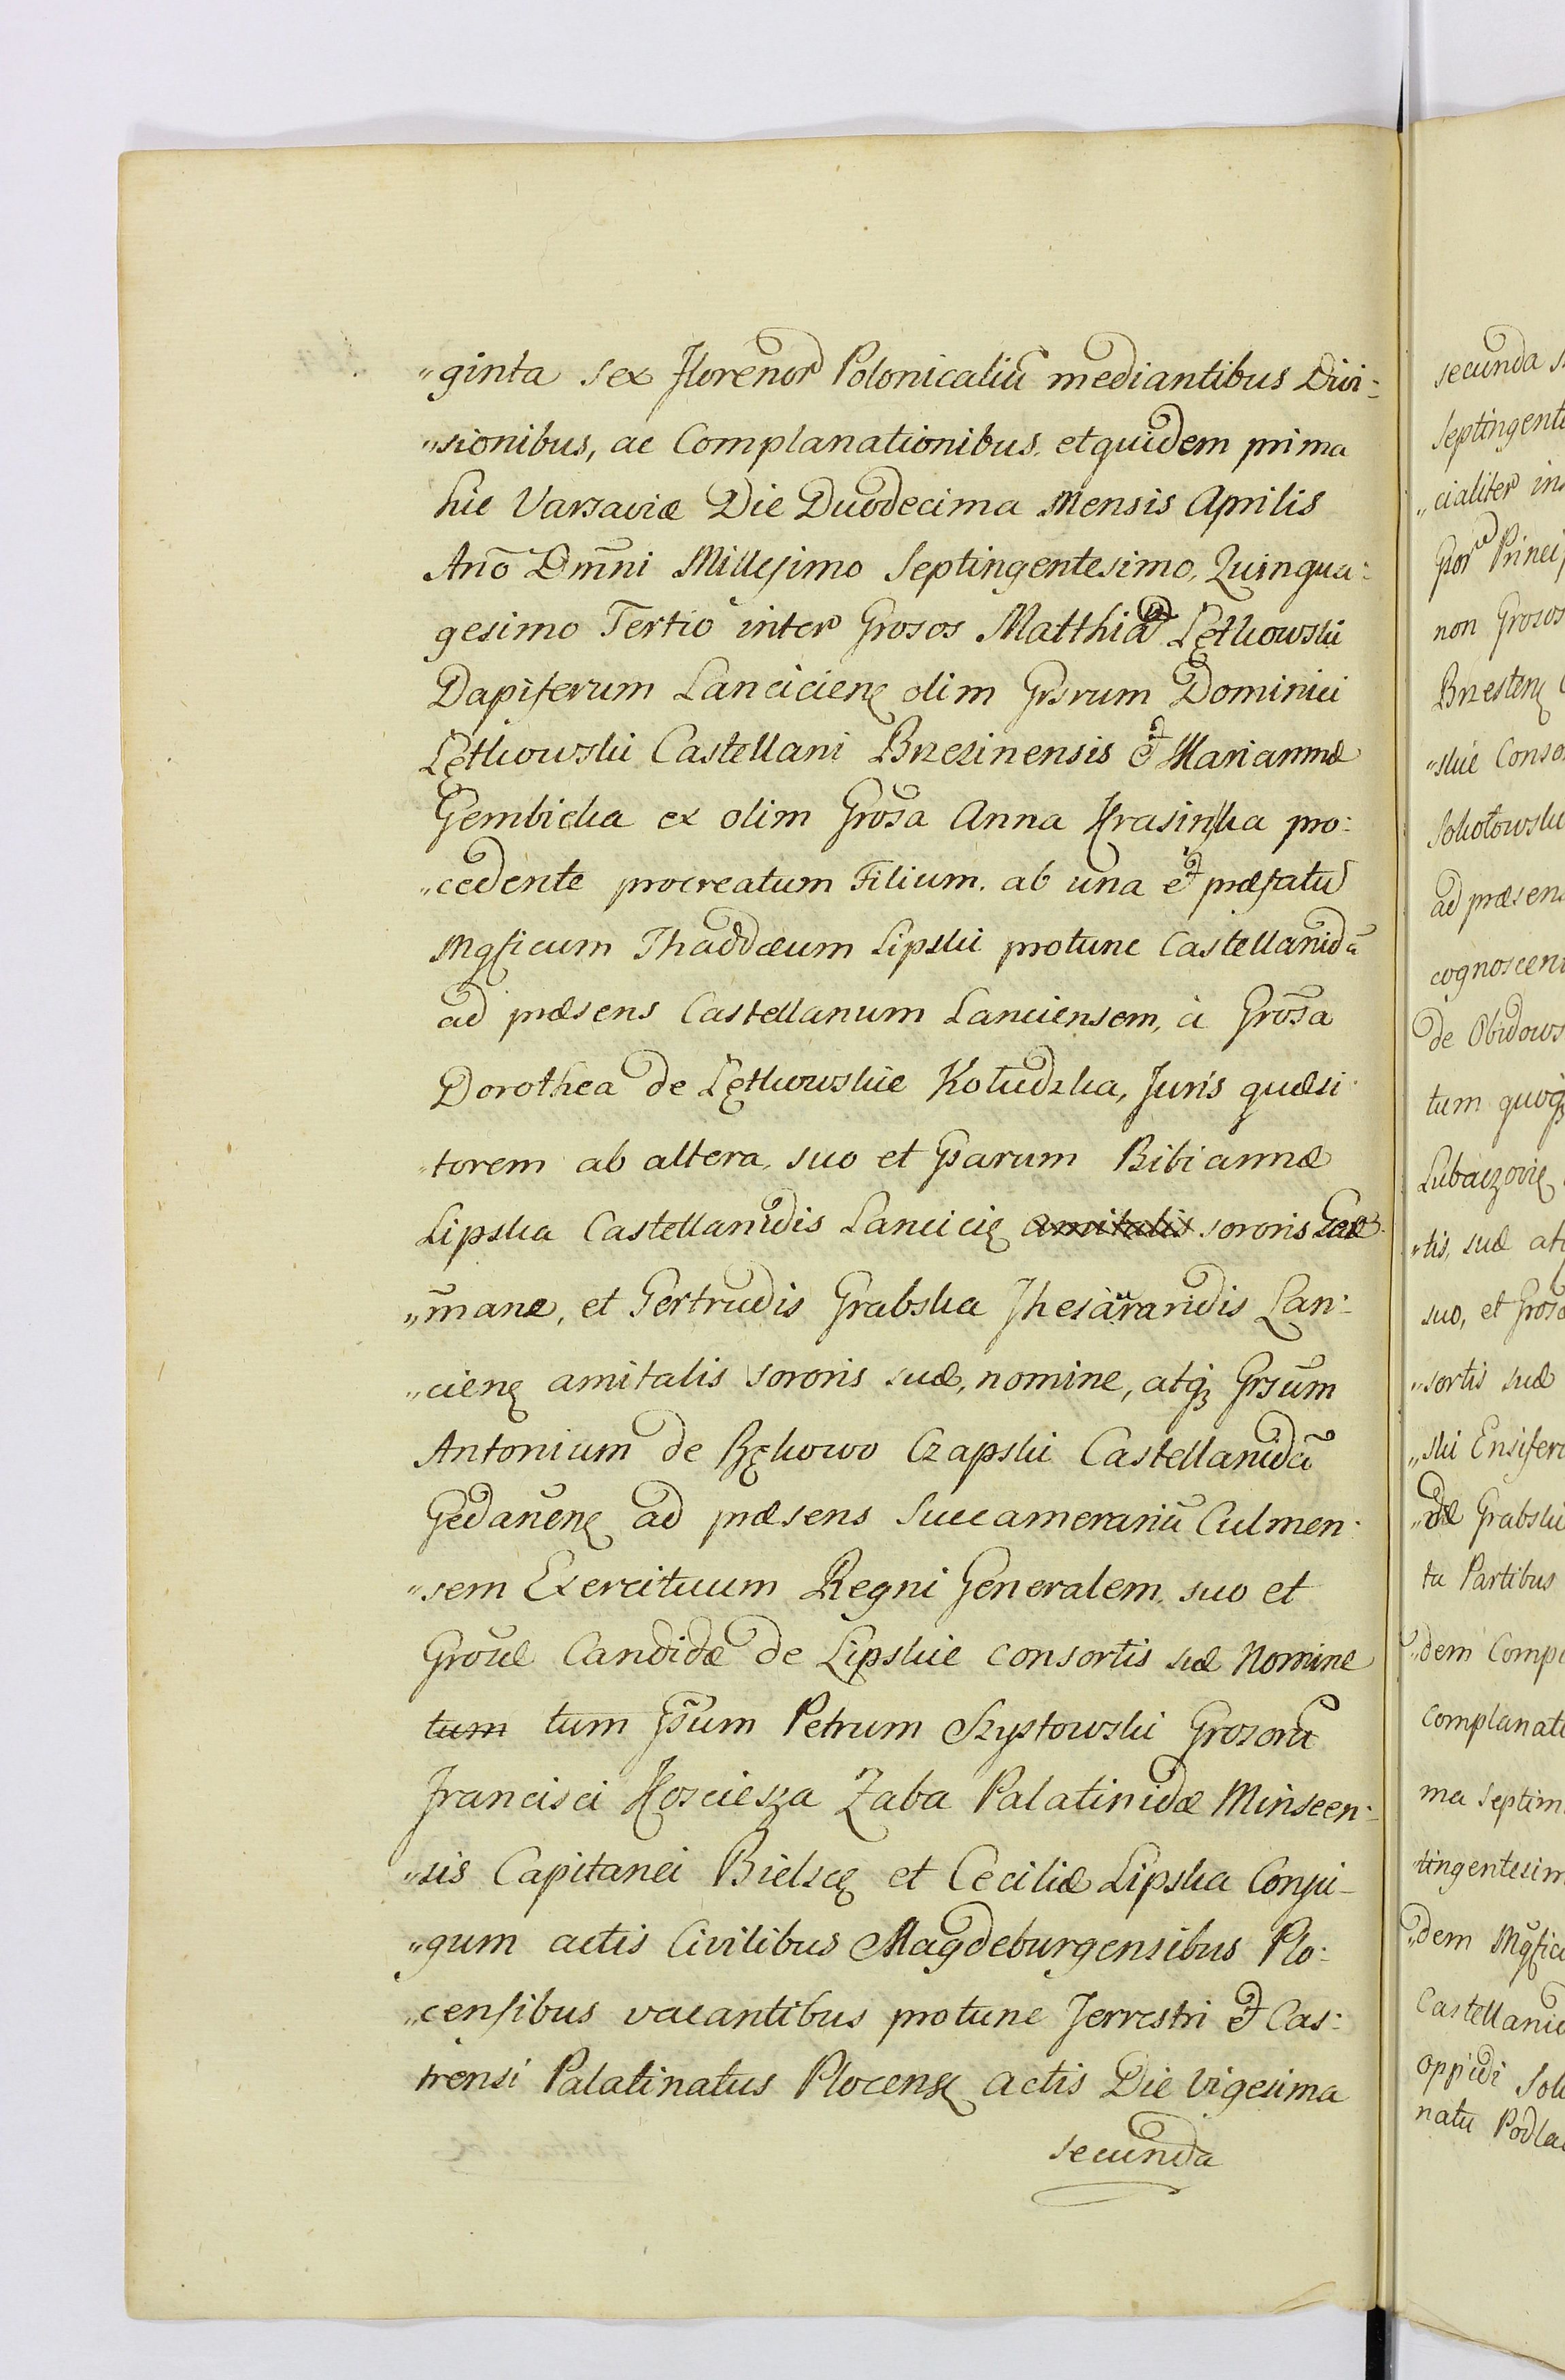 "ginta sex Florenor Polonicaliũ mediantibus Divi:
"sionibus, ac Complanationibus, et quidem prima
hic Varsaviæ Die Duodecima Mensis Aprilis
Anõ Dm̃ni Millesimo Septingentesimo, Quinqua:
gesimo Tertio inter Grosos Matthiã Lętkowski
Dapiferum Lancicienę olim Grsrum Dominici
Lętkowski Castellani Brzezinensis et Mariannæ
Gembicka ex olim Grosa Anna Krasinska pro:
"cedente procreatum Filium. ab una et præfatũ
Mgficum Thaddæum Lipski protunc Castellanidã
ad præsens Castellanum Lanciensem, à Grosa
Dorothea de Lętkowskie Kołudzka, Juris quæsi
"torem ab altera, suo et Gsarum Bibiannæ
Lipska Castellanidis Lancicię amitalis sororis Ger
"mane, et Gertrudis Grabska Thesaurandis Lan:
"cienę amitalis sororis suæ, nomine, atqz Grsum
Antonium de Rękowo Czapski Castellanidã
Gedanenę ad præsens Succamerariũ Culmen:
"sem Exercituum Regni Generalem, suo et
Candidæ de Lipskie consortis suæ Nomine
tum tum Gsum Petrum Szystowski Grosorũ
Francisci Kosciesza Zaba Palatinidæ Minscen:
"sis Capitanei Bielscę et Ceciliæ Lipska Conju-
"gum actis Civilibus Magdeburgensibus Plo:
"censibus vacantibus protunc Terrestri et Cas:
trensi Palatinatus Plocensę actis Die Vigesima
secunda
secunda
Septingent
"cialiter
Princi
non Grosos
Brzestenę
"skie Conso
Sokołowski
ad præsen
cognoscen
de Obidows
tum quoqz
Lubaczovię
"tis, suæ
suo, et Grosa
"sortis suæ
"ski Ensifer
"dæ Grabski
tu Partibus
"dem Comp
complanat
ma Septim
tingentesim
"dem Mgfic
Castellani
oppidi
natu Podla